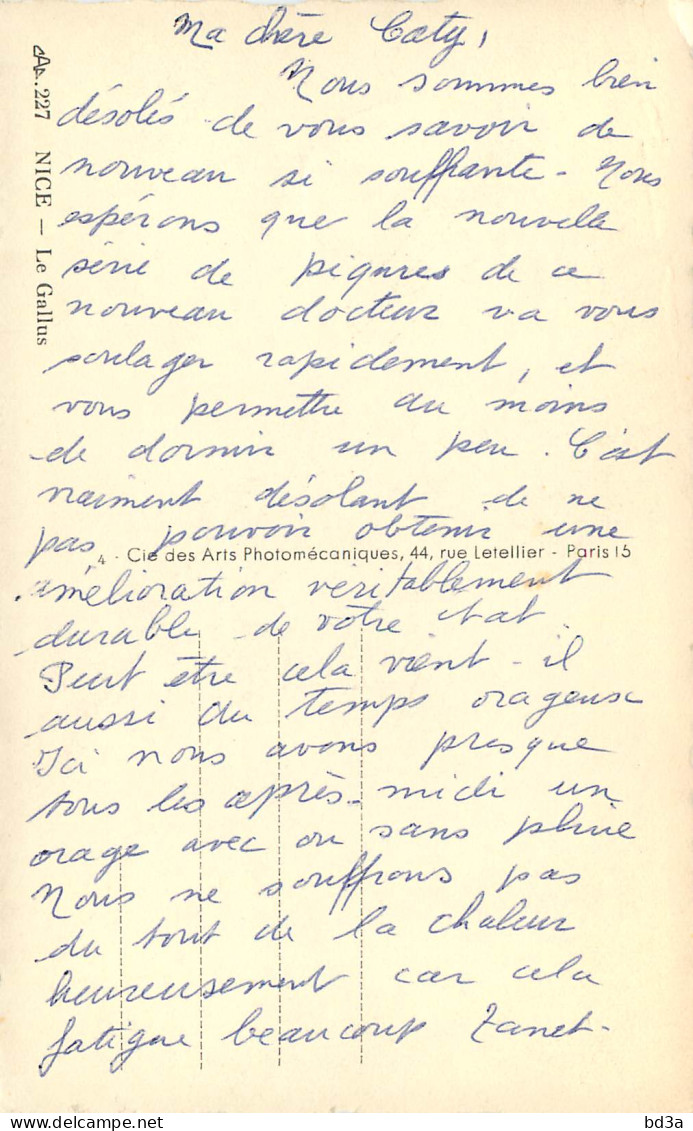 Ma chère Caty,
Nous sommes bien
désolés de vous savoir de
nouveau si souffrante - Nous
espérons que la nouvelle
série de piqures de ce
nouveau docteur va vous
soulager rapidement, et
vous permettre au moins
de dormir un peu. C'est
vraiment désolant de ne
pas pouvoir obtenir une
4 - Cie des Arts Photomécaniques, 44, rue Letellier - Paris 15
amélioration véritablement
durable de votre état.
Peut être cela vient-il
aussi du temps orageux
Ici nous avons presque
tous les après-midi un
orage avec ou sans pluie
Nous ne souffrons pas
du tout de la chaleur
heureusement car cela
fatigue beaucoup Zanet-
227 NICE — Le Gallus
bd3a